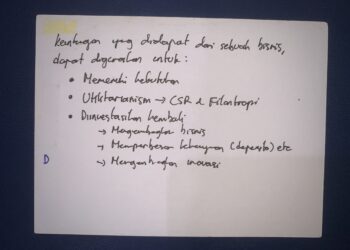 Keuntungan yang didapat dari sebuah bisnis,
dapat digunakan untuk :
• Memenuhi kebutuhan
• Utilitarianism → CSR & Filantropi
• Diinvestasikan kembali
→ Mengembangkan bisnis
→ Memperbesar keuangan (deposito) etc
→ Mengembangkan inovasi
D